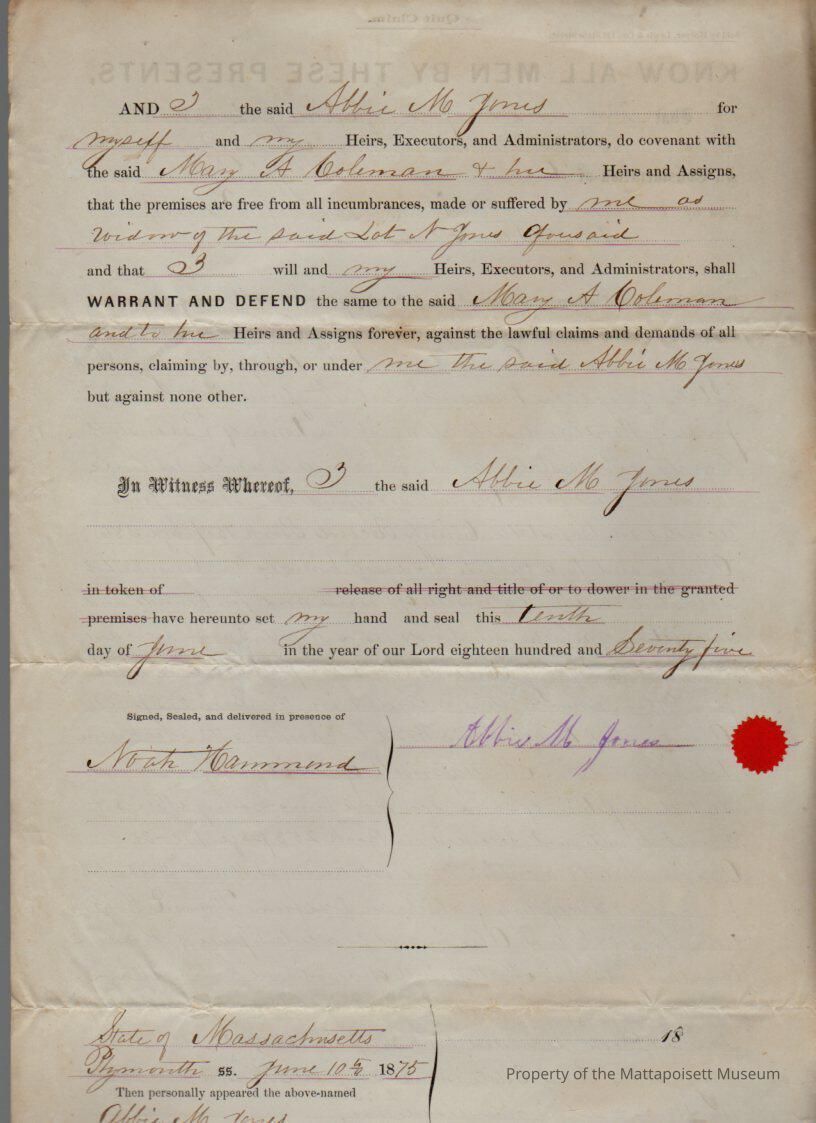 AND I the said Abbie M Jones for
myself and my Heirs, Executors, and Administrators, do covenant with
the said Mary A Coleman & her Heirs and Assigns,
that the premises are free from all incumbrances, made or suffered by me as
Widow of the said Lot N Jones afousaid
and that I will and my Heirs, Executors, and Administrators, shall
WARRANT AND DEFEND the same to the said Mary A Coleman
and to her Heirs and Assigns forever, against the lawful claims and demands of all
persons, claiming by, through, or under me the said Abbie M Jones
but against none other.
In Witness Whereof, I the said Abbie M Jones
in token of release of all right and title of or to dower in the granted
premises have hereunto set my hand and seal this tenth
day of June in the year of our Lord eighteen hundred and Seventy five
Signed, Sealed, and delivered in presence of
Abbie M Jones
Noah Hammond
State of Massachusetts
18
Plymouth ss. June 10th 1875
Property of the Mattapoisett Museum
Then personally appeared the above-named
Abbie M Jones